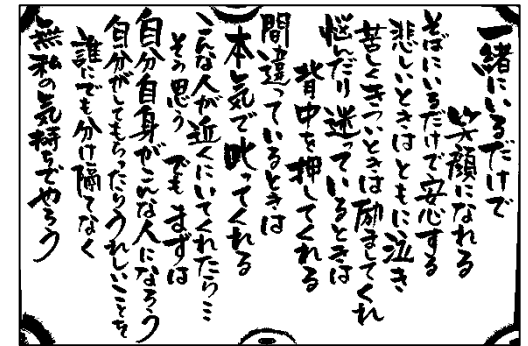 一緒にいるだけで
笑顔になれる
そばにいるだけで安心する
悲しいときはともに泣き
苦しくきついときは励ましてくれ
悩んだり迷っているときは
背中を押してくれる
間違っているときは
本気で叱ってくれる
こんな人が近くにいてくれたら…
そう思う でもまずは
自分自身がこんな人になろう
自分がしてもらったりうれしいことを
誰にでも分け隔てなく
無私の気持ちでやろう